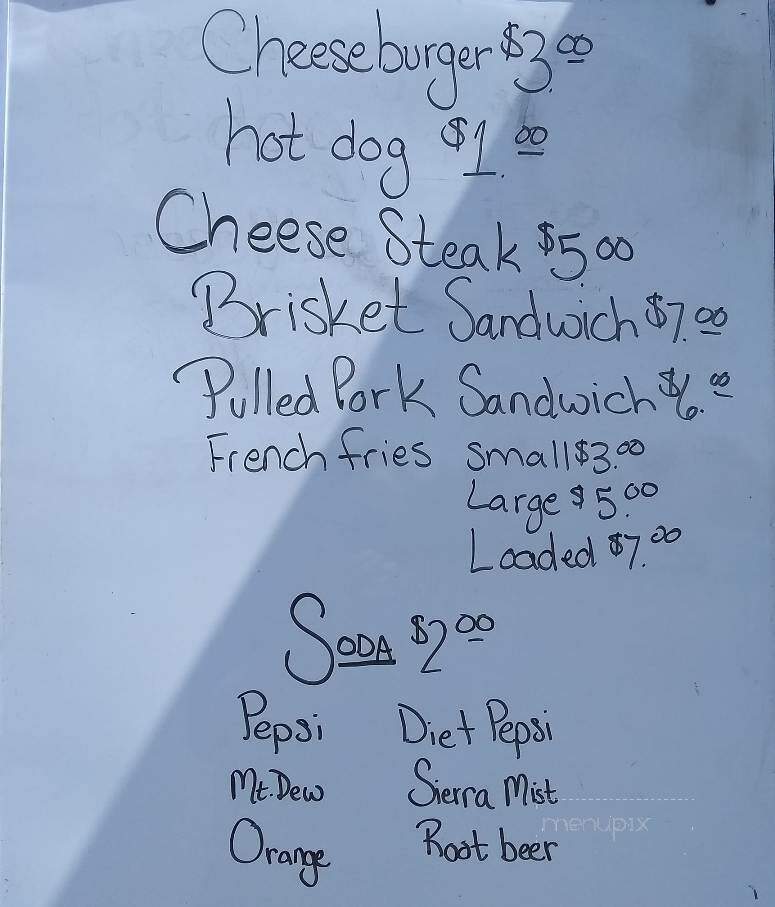 Cheeseburger $3.00
hot dog $1.00
Cheese Steak $5.00
Brisket Sandwich $7.00
Pulled Pork Sandwich $6.00
French fries small $3.00
Large $5.00
Loaded $7.00
SODA $2.00
Pepsi Diet Pepsi
Mt. Dew Sierra Mist
Orange Root beer
menupix